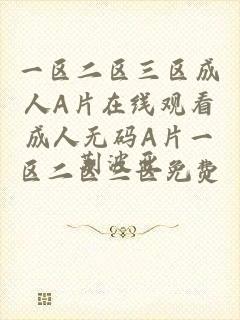 一区二区三区成
人A片在线观看
成人无码A片一
区二区三区免费